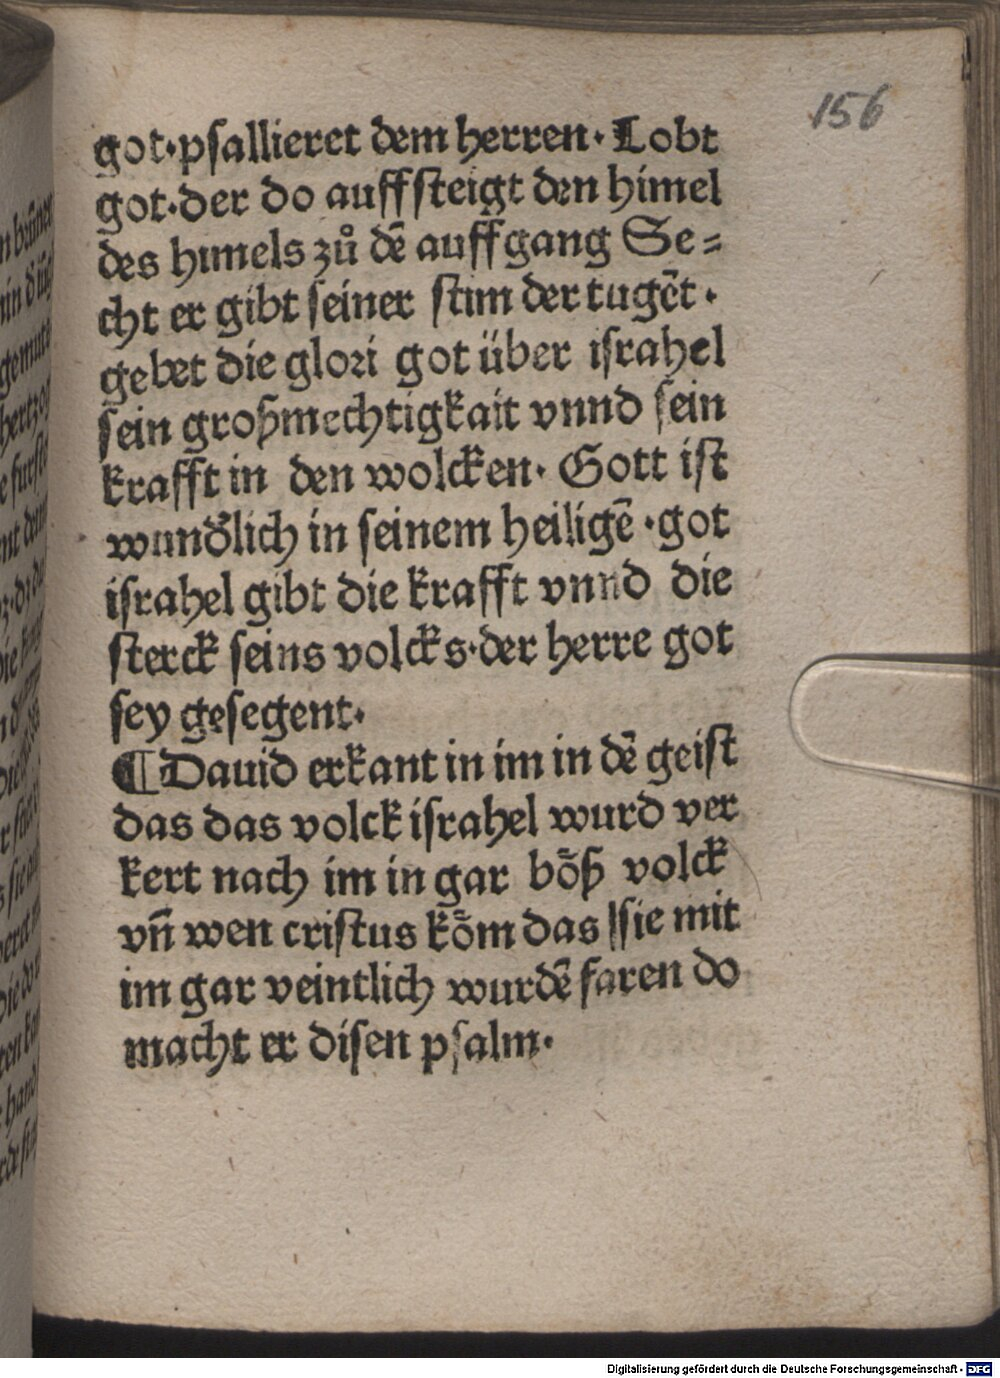 156
got·psallieret dem herren· Lobt
got·der do auffsteigt den himel
des himels zů dē auffgang Se⸗
cht er gibt seiner stim der tugēt·
gebet die glori got über israhel
sein großmechtigkait vnnd sein
krafft in den wolcken· Gott ist
wundlich in seinem heiligē ·got
israhel gibt die krafft vnnd die
sterck seins volcks·der herre got
sey gesegent·
¶Dauid erkant in im in dē geist
das das volck israhel wurd ver
kert nach im in gar böß volck
vn̄ wen cristus köm das sie mit
im gar veintlich wurdē faren do
macht er disen psalm·
Digitalisierung gefördert durch die Deutsche Forschungsgemeinschaft - DFG